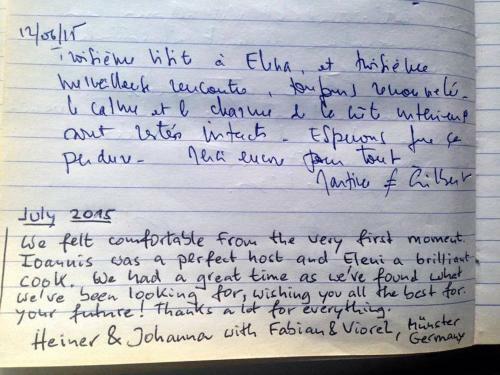 12/06/15
Troisième visit à Elena, et troisième
merveilleuse rencontre, toujours renouvelé.
le calme et le charme de la intérieurs
sont restés intacts. Esperons que ça
perdure. Merci encore pour tout
Martine & Gilbert
July 2015
We felt comfortable from the very first moment.
Ioannis was a perfect host and Eleni a brilliant
cook. We had a great time as we've found what
we've been looking for, wishing you all the best for
your future! Thanks a lot for everything.
Heiner & Johanna with Fabian & Viorel, Münster
Germany